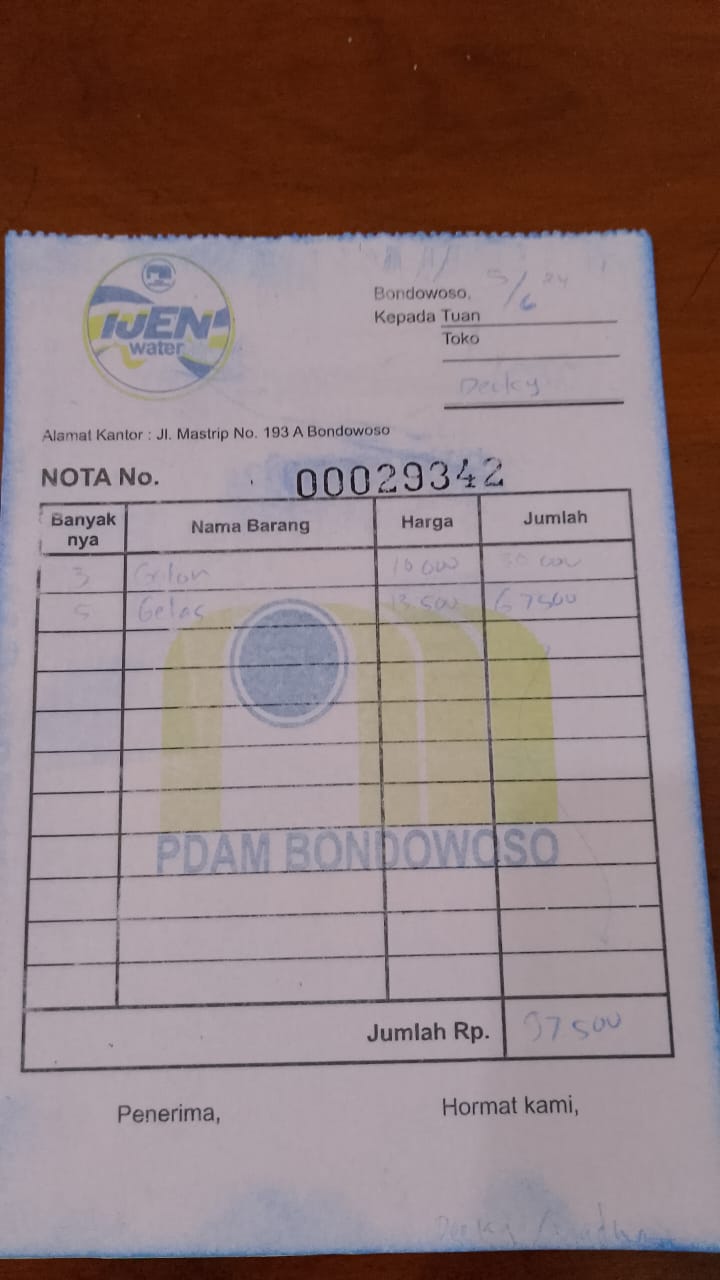 IJEN
water
Bondowoso, 5/6 24
Kepada Tuan
Toko
Decky
Alamat Kantor : Jl. Mastrip No. 193 A Bondowoso
NOTA No. 00029342
Banyak nya Nama Barang Harga Jumlah
3 Galon 10 000 30 000
5 Gelas 13 500 67 500
PDAM BONDOWOSO
Jumlah Rp. 97 500
Penerima, Hormat kami,
Decky